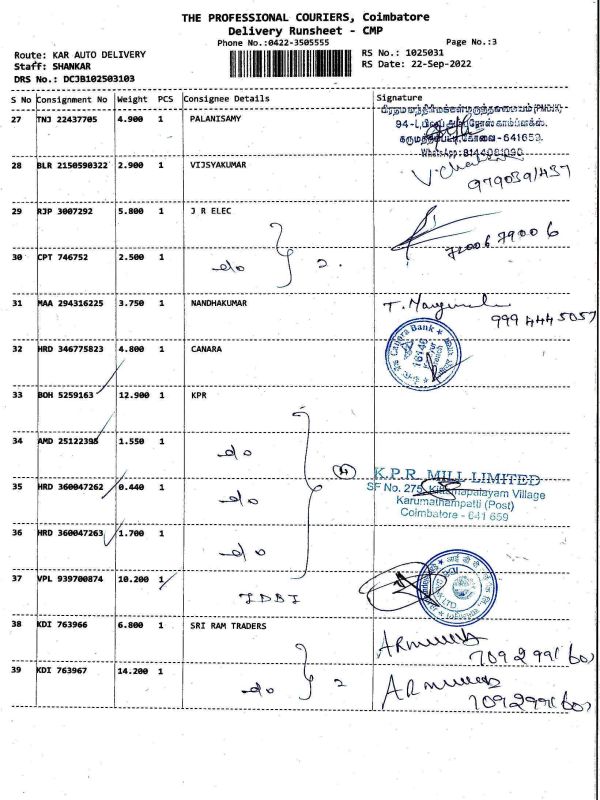 THE PROFESSIONAL COURIERS, Coimbatore
Delivery Runsheet - CMP
Phone No.:0422-3505555
Page No.:3
Route: KAR AUTO DELIVERY
RS No.: 1025031
Staff: SHANKAR
RS Date: 22-Sep-2022
DRS No.: DCJB102503103
S No Consignment No Weight PCS Consignee Details Signature
27 TNJ 22437705 4.900 1 PALANISAMY
கருமத்தம்பட்டி, கோவை - 641659.
WhatsApp: 8144081090
28 BLR 2150590322 2.900 1 VIJSYAKUMAR
9790391437
29 RJP 3007292 5.800 1 J R ELEC
72006 79006
30 CPT 746752 2.500 1 do 2.
31 MAA 294316225 3.750 1 NANDHAKUMAR
999 444 5057
32 HRD 346775823 4.800 1 CANARA
Canara Bank
16146
33 BOH 5259163 12.900 1 KPR
34 AMD 25122395 1.550 1 do
4
K.P.R. MILL LIMITED
35 HRD 360047262 0.440 1 do
SF No. 275, Kittampalayam Village
Karumathampatti (Post)
Coimbatore - 641 659
36 HRD 360047263 1.700 1 do
37 VPL 939700874 10.200 1 IDBI
38 KDI 763966 6.800 1 SRI RAM TRADERS
7092991601
39 KDI 763967 14.200 1 do 2
7092991601